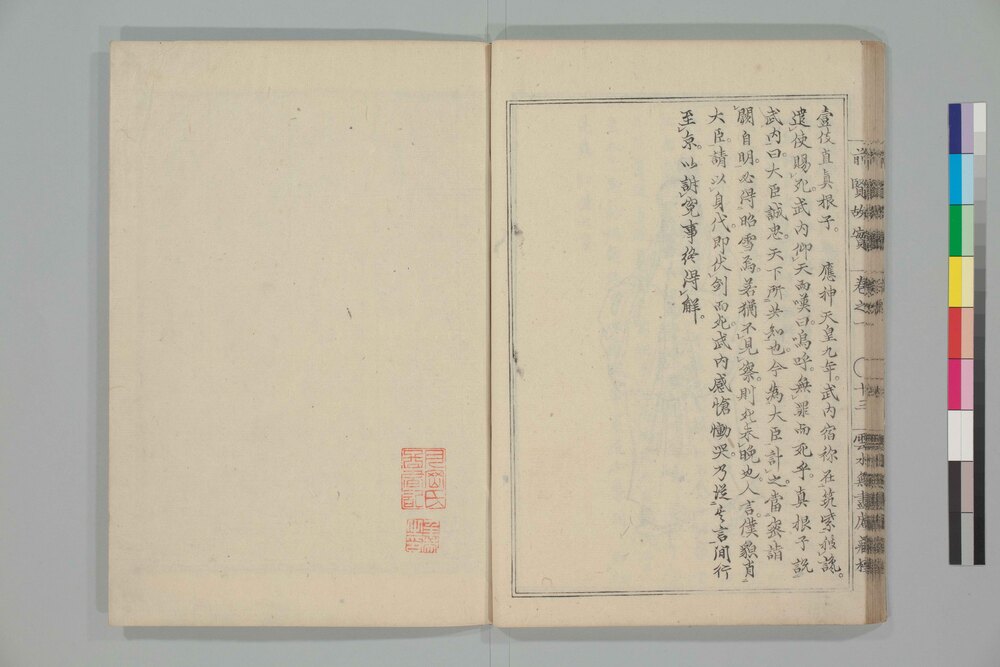 壹伎直真根子。　應神天皇九年。武内宿祢在筑紫被讒。
遣使賜死。武内仰天而嘆曰。嗚呼。無罪而死乎。真根子説
武内曰。大臣誠忠。天下所共知也。今為大臣計之。當密詣
闕自明。必得昭雪焉。若猶不見察。則死未晩也。人言。僕貌肖
大臣。請以身代。即伏劍而死。武内感愴慟哭。乃從其言。間行
至京。以訴冤事終得解。
前賢故實　卷之一　十三